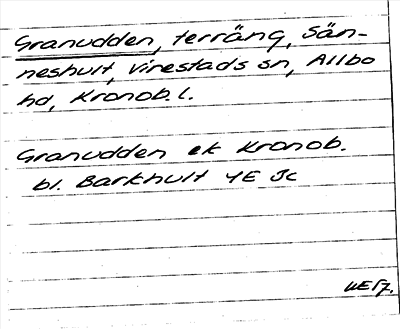 Granudden, terräng, Sän-
neshult, Virestads sn, Allbo
hd, Kronob. l.
Granudden ek Kronob.
bl. Barkhult 4E 3c